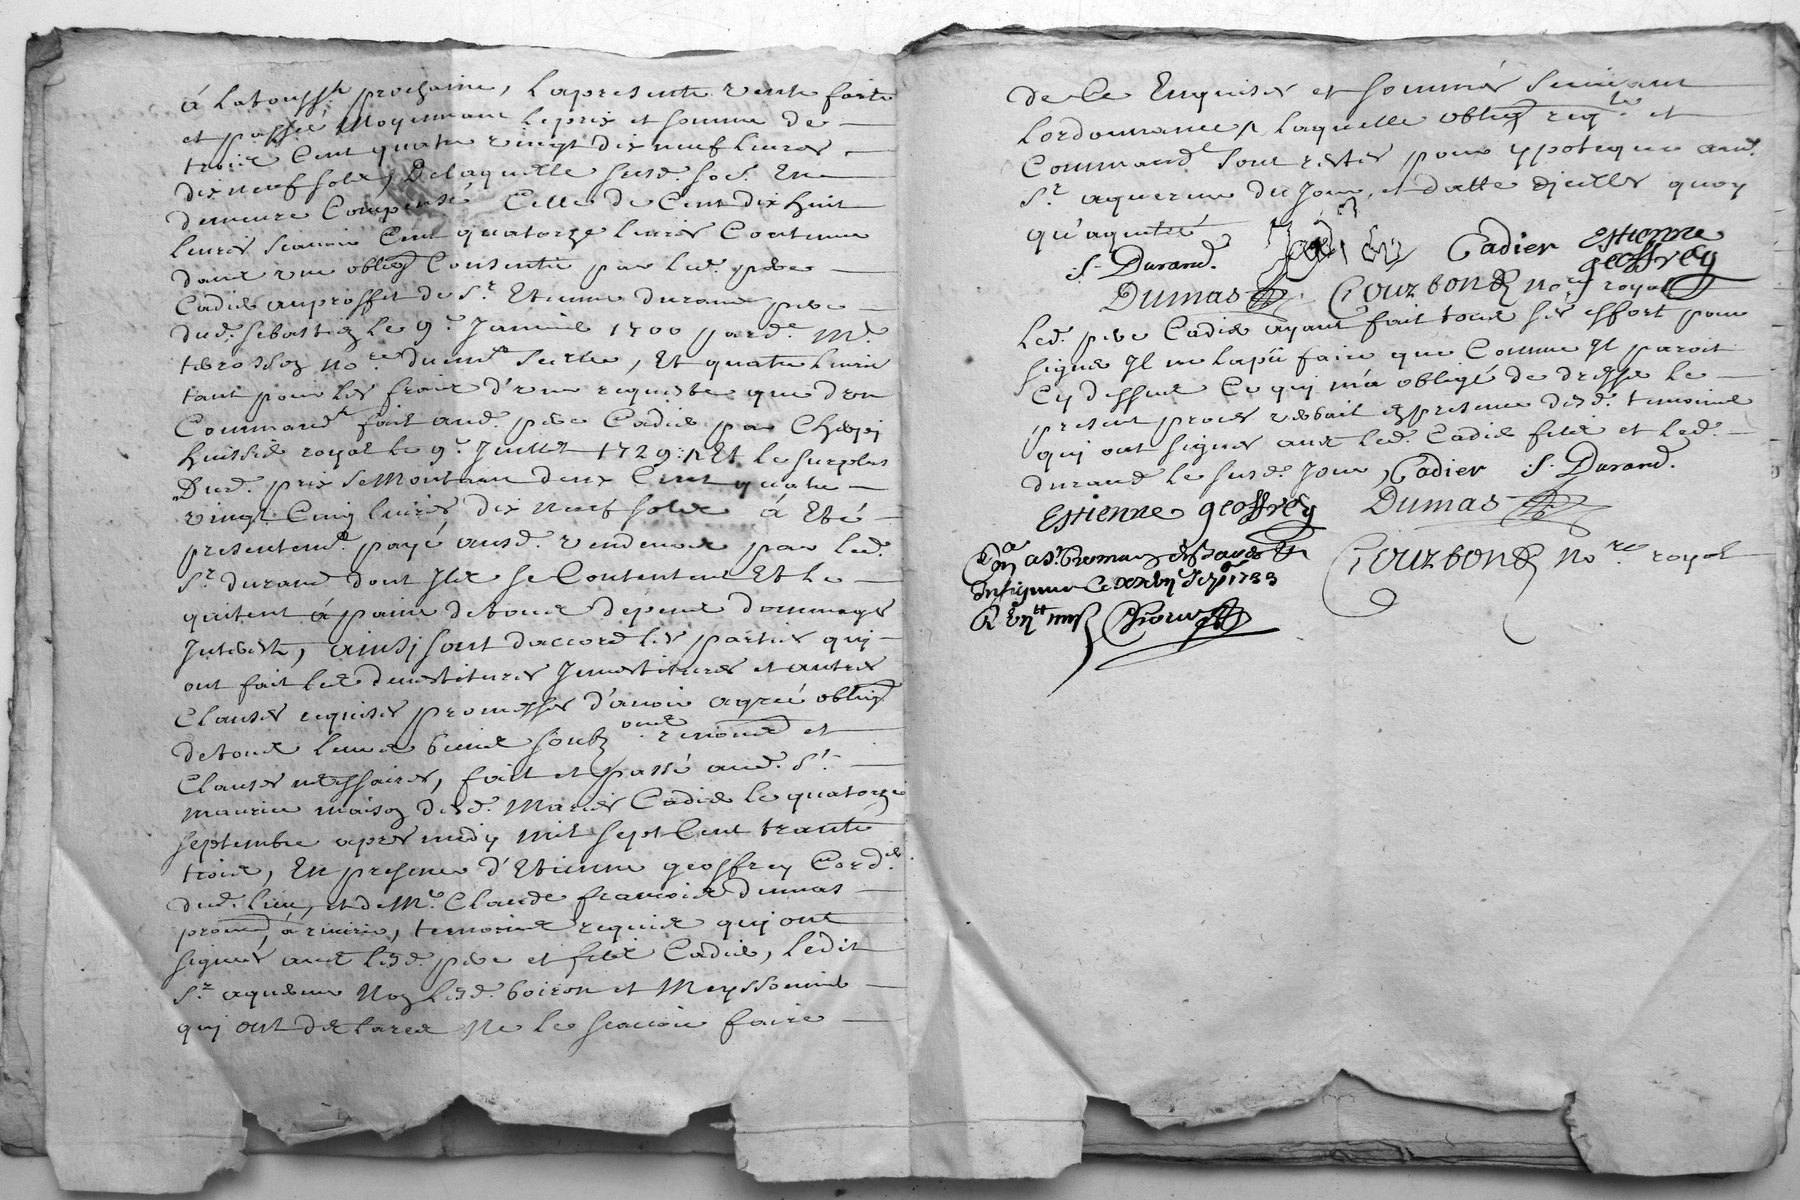 á latoussts prochaine, lapresente vente faite
et passée Moyennant leprix et somme de
trois Cent quatre vingt dix neuf livres,
dix neuf sols, Delaquelle susd. so.e En
demeure Compensé Celle de Cent dix huit
livres scavoir Cent quatorze livres Contenue
dans une oblig.on Consentie par led. père
Cadier auproffit de S.r Etienne durand père
dud. sebastien le 9.e Janvier 1700 pard. M.e
tebrossoz no.re
tant pour les frais d'une requeste que d'un
Command.t fait aud. père Cadier par
huissier royal le 9.e Juillet 1729: Et le surplus
Dud. prix se Montant deux Cent quatre
vingt Cinq livres dix neuf sols á Eté
presentem.t payé ausd. vendeurs par led.
S.r durand dont Ils se Contentent Et le
quitent á paine detous dépens dommages
Interests, ainsy sont daccord les parties qui
ont fait les devestitures Investitures et autres
Clauses requises promesses d'avoir agréé oblig.on
detous leurs biens soubz.ons renonc.ons et
Clauses necessaires, fait et passé aud. S.t
maurice maison desd. Mariés Cadier le quatorze
septembre apres midy mil sept Cent trante
trois, En presence d'Etienne geoffrey Cord.er
dud. lieu, et de M.e Claude francois dumas
á, temoins requis qui ont
signés avec lesd. père et fils Cadier, ledit
S.r aquereur Non lesd. boiron et Meyssonnier
qui ont declarés Ne le scavoir faire
de Ce Enquises et sommés suivant
lordonnance, laquelle oblig.on req.te et
Command.t sont restés pour ypoteque aud.
S.r aquereur du Jour et datte dicelles quoy
qu'aquités
S. Durand. Cadier Estienne
geoffrey
Dumas Courbon no.re royal
Led. père Cadier ayant fait tous ses effort pour
signer Il ne lapû faire que Comme Il paroit
Cy dessus Ce qui m'a obligé de dresser le
present proces verbail En presence desd. temoins
qui ont signés avec led. Cadier fils et led.
durand le susd. Jour, Cadier S. Durand.
Estienne geoffrey Dumas
Courbon no.re royal
1733